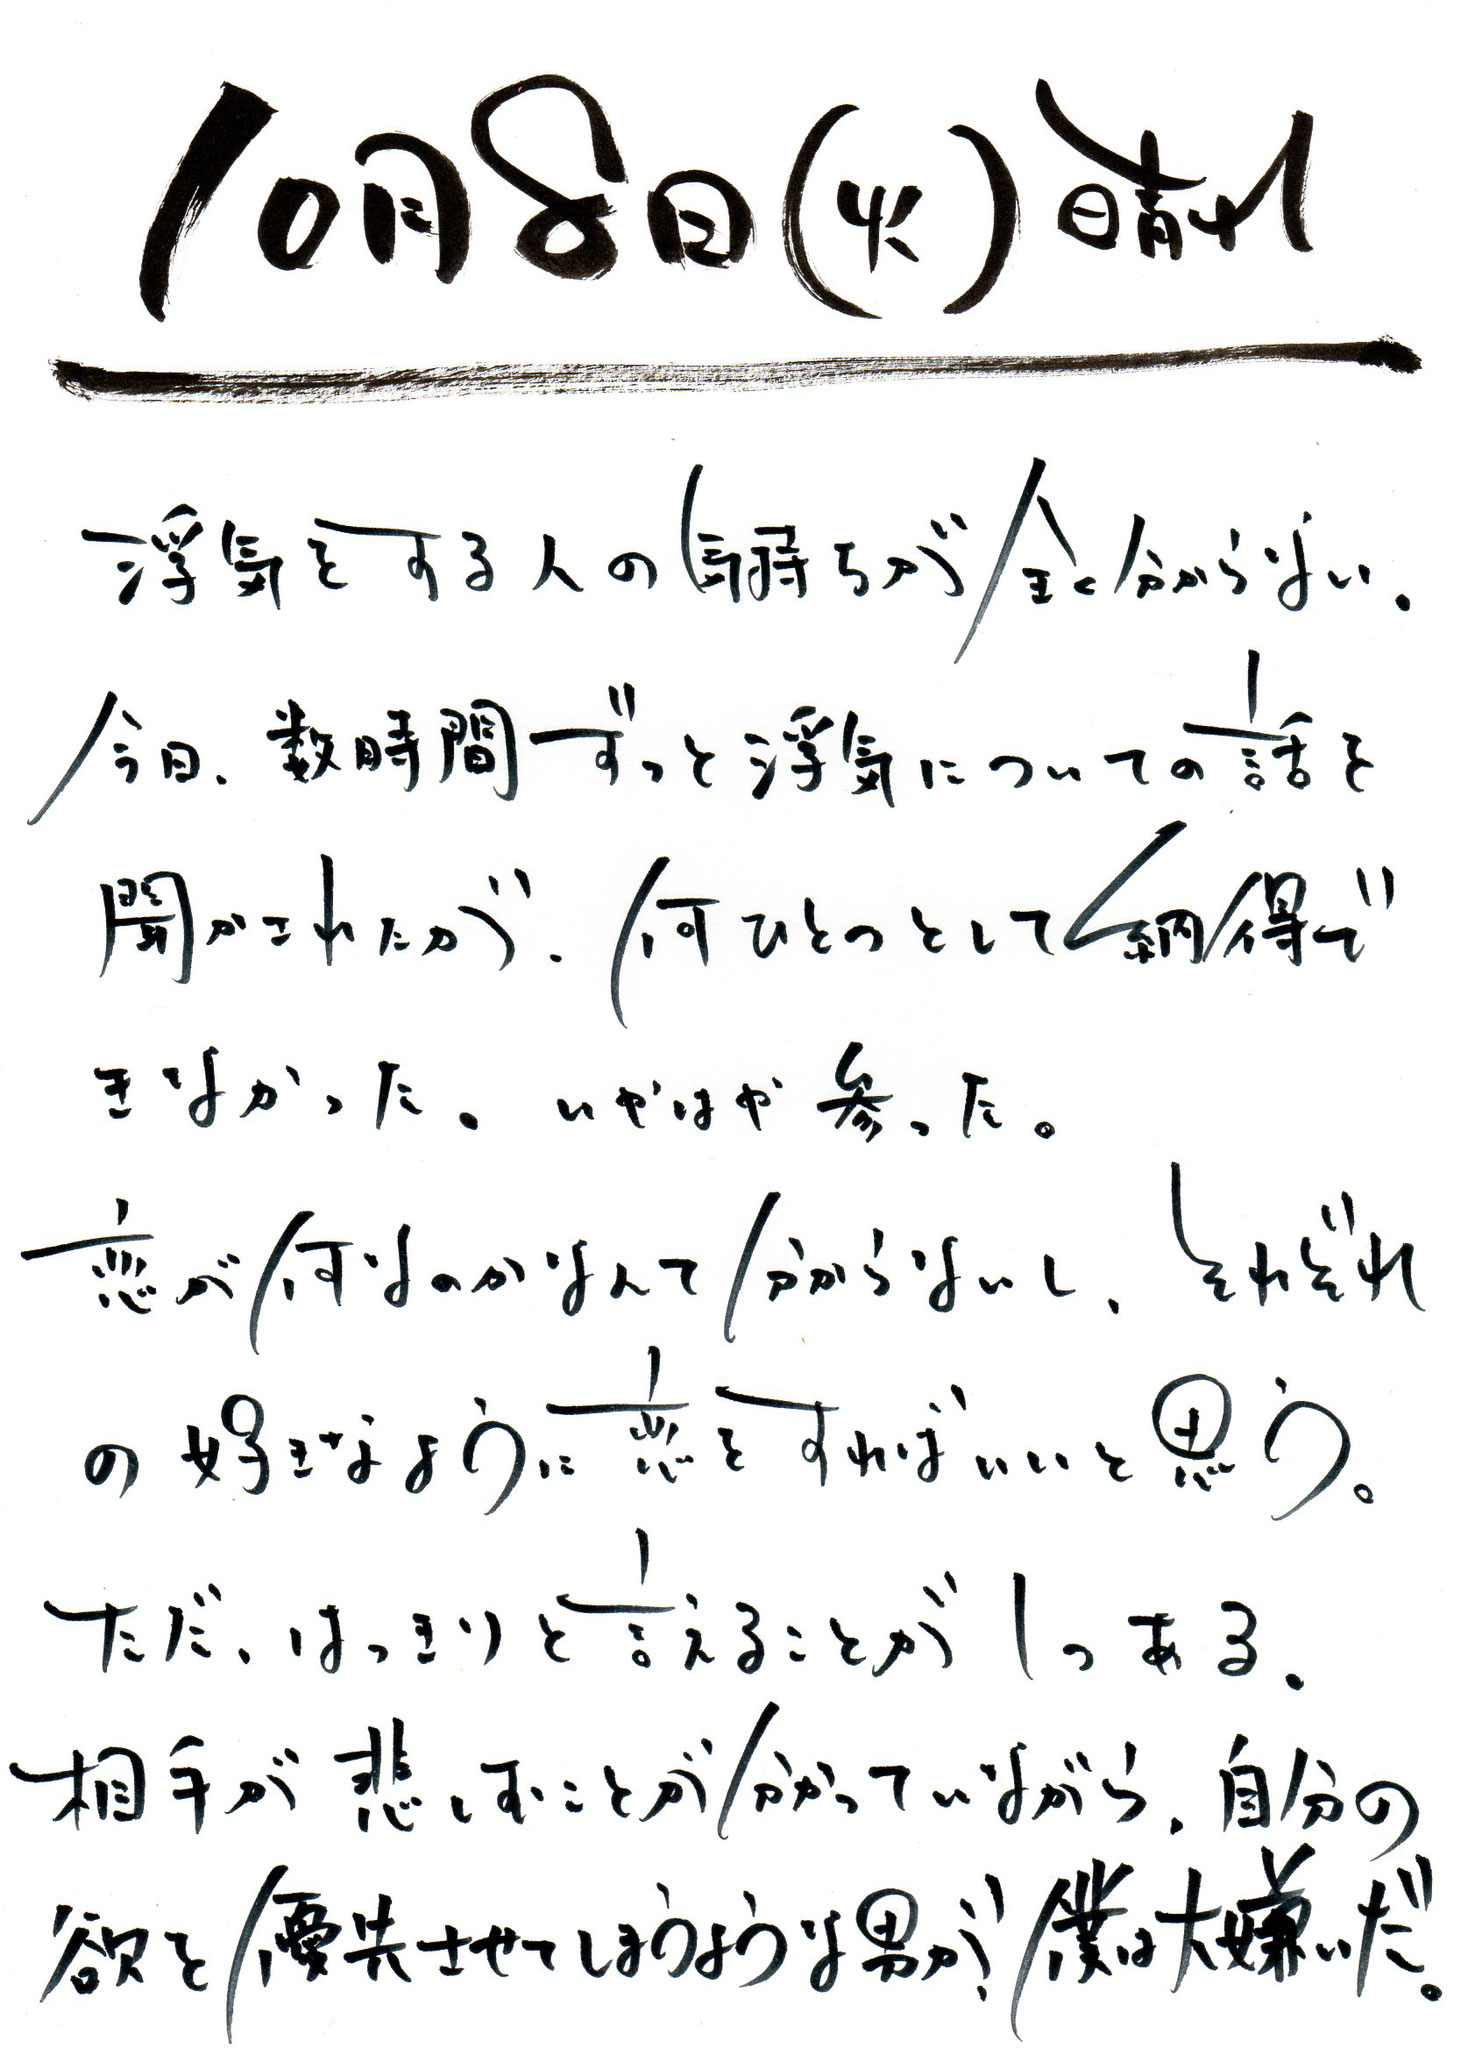 10月8日(火)晴れ
浮気をする人の気持ちが全く分からない。
今日、数時間ずっと浮気についての話を
聞かされたが、何ひとつとして納得で
きなかった。いやはや参った。
恋が何なのかなんて分からないし、それぞれ
の好きなように恋をすればいいと思う。
ただ、はっきりと言えることが1つある。
相手が悲しむことが分かっていながら、自分の
欲を優先させてしまうような男が、僕は大嫌いだ。